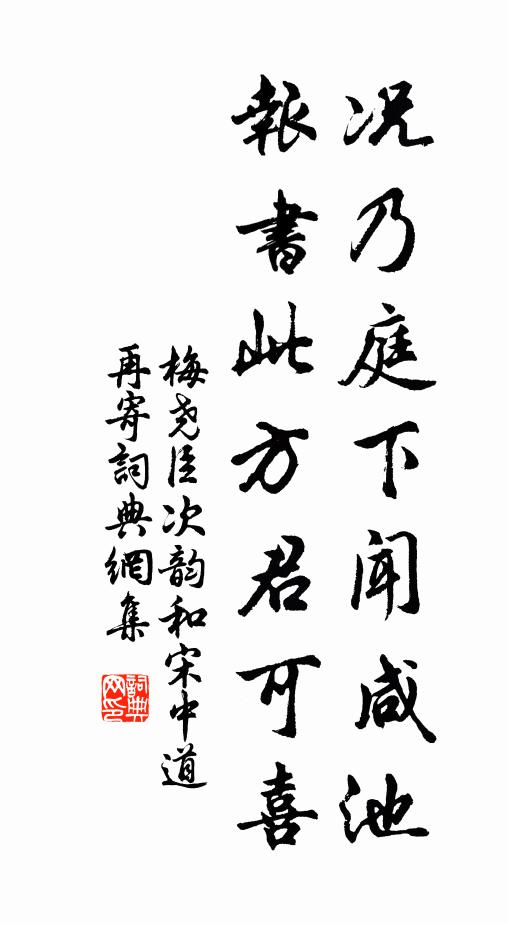 况乃庭下闻咸池
報書此方君可喜
梅尧臣次韵和宋中道
再寄詞典網集
詞典网印